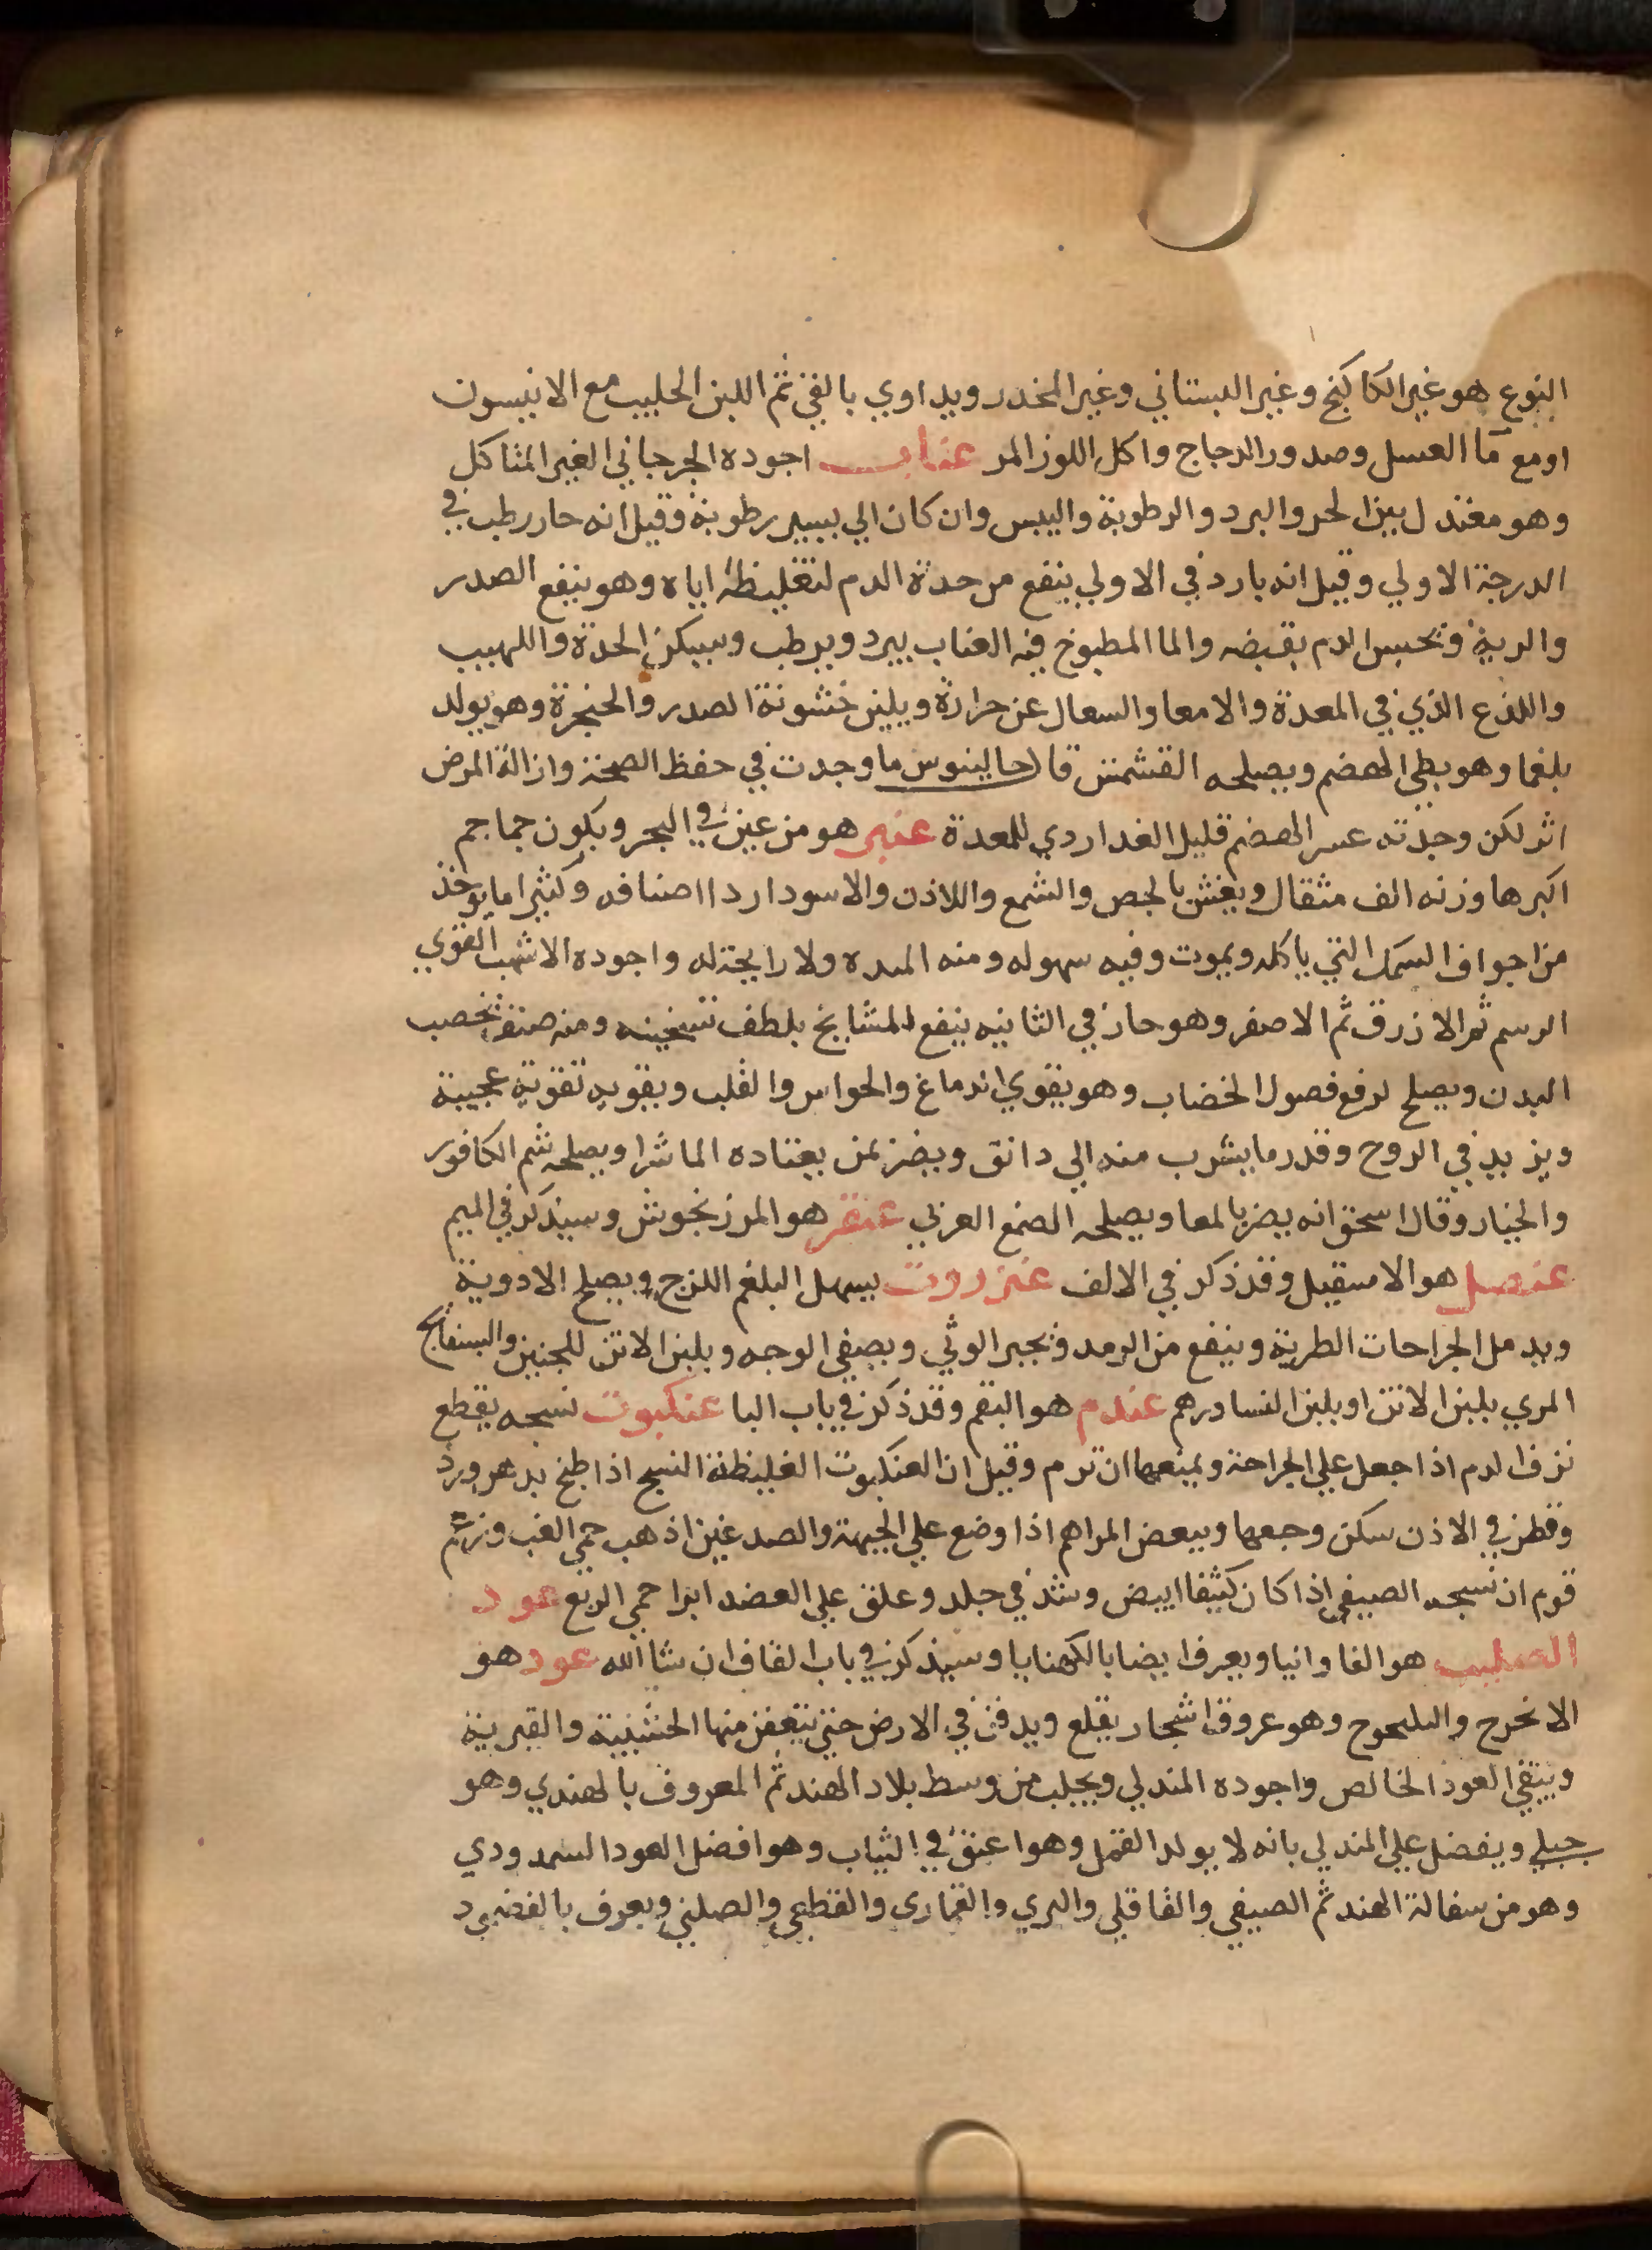 النوع هو غير الكاكنج وغير البستاني وغير المخدر ويداوي بالقي ثم اللبن الحليب مع الانيسون
او مع ما العسل وصدور الدجاج واكل اللوز المر عناب اجوده الجرجاني الغير المتاكل
وهو معتدل بين الحر والبرد والرطوبة واليبس وان كان الي يسير رطوبة وقيل انه حار رطب في
الدرجة الاولي وقيل انه بارد في الاولي ينفع من حدة الدم لتغليظه اياه وهو ينفع الصدر
والرية وتحبس الدم بقبضه والما المطبوخ فيه العناب يبرد ويرطب ويسكن الحدة واللهيب
واللذع الذي في المعدة والامعا والسعال عن حرارة ويلين خشونة الصدر والحنجرة وهو يولد
بلغما وهو بطي الهضم ويصلحه القشمش قال جالينوس ما وجدت في حفظ الصحة وازالة المرض
اثر لكن وجدته عسر الهضم قليل الغدا ردي للمعدة عنبر هو من عين في البحر ويكون جماجم
اكبرها وزنه الف مثقال ويغش بالجص والشمع واللاذن والاسود اردا اصنافه وكثيرا ما يوخذ
من اجواف السمك التي ياكله ويموت وفيه سهوله ومنه المده ولا رايحة له واجوده الاشهب القوي
الرسم ثم الازرق ثم الاصفر وهو حار في الثانيه ينفع المشايخ بلطف تسخينه ومنه صنف يخصب
البدن ويصلح لرفع فصول الخضاب وهو يقوي الدماغ والحواس والقلب ويقويه تقوية عجيبة
ويزيد في الروح وقدر ما يشرب منه الي دانق ويضر بمن يعتاده الماشرا ويصلحه شم الكافور
والخيار وقال اسحق انه يضر بالمعا ويصلحه الصمغ العربي عنقر هو المرزنجوش وسيذكر في الميم
عنصل هو الاسقيل وقد ذكر في الالف عنزروت يسهل البلغم اللزج ويصلح الادوية
ويدمل الجراحات الطرية وينفع من الرمد وتجبر الوثي ويصفي الوجه وبلبن الاتن للجنين والبسفايج
المري بلبن الاتن او بلبن النسا درهم عندم هو البقم وقد ذكر في باب البا عنكبوت نسجه يقطع
نزف الدم اذا جعل علي الجراحة ويمنعها ان ترم وقيل ان العنكبوت الغليظة النسج اذا طبخ بدهن ورد
وقطر في الاذن سكن وجعها وببعض المراهم اذا وضع علي الجبهة والصدغين اذهب حمي الغب وزعم
قوم ان نسجه الصيفي اذا كان كثيفا ابيض وشد في جلد وعلق علي العضد ابرا حمي الربع عود
الصليب هو الفاوانيا ويعرف ايضا بالكهنايا وسيذكر في باب الفا ان شا الله عود هو
الانخرج واليلنجوج وهو عروق اشجار يقلع ويدفن في الارض حتي يتعفن منها الخشبية والقيرية
ويبقي العود الخالص واجوده المندلي ويجلب من وسط بلاد الهند ثم المعروف بالهندي وهو
جبلي ويفضل علي المندلي بانه لا يولد القمل وهو اعبق في الثياب وهو افضل العود السمدودي
وهو من سفالة الهند ثم الصيفي والقاقلي والبري والقماري والقطعي والصلني ويعرف بالقضيب